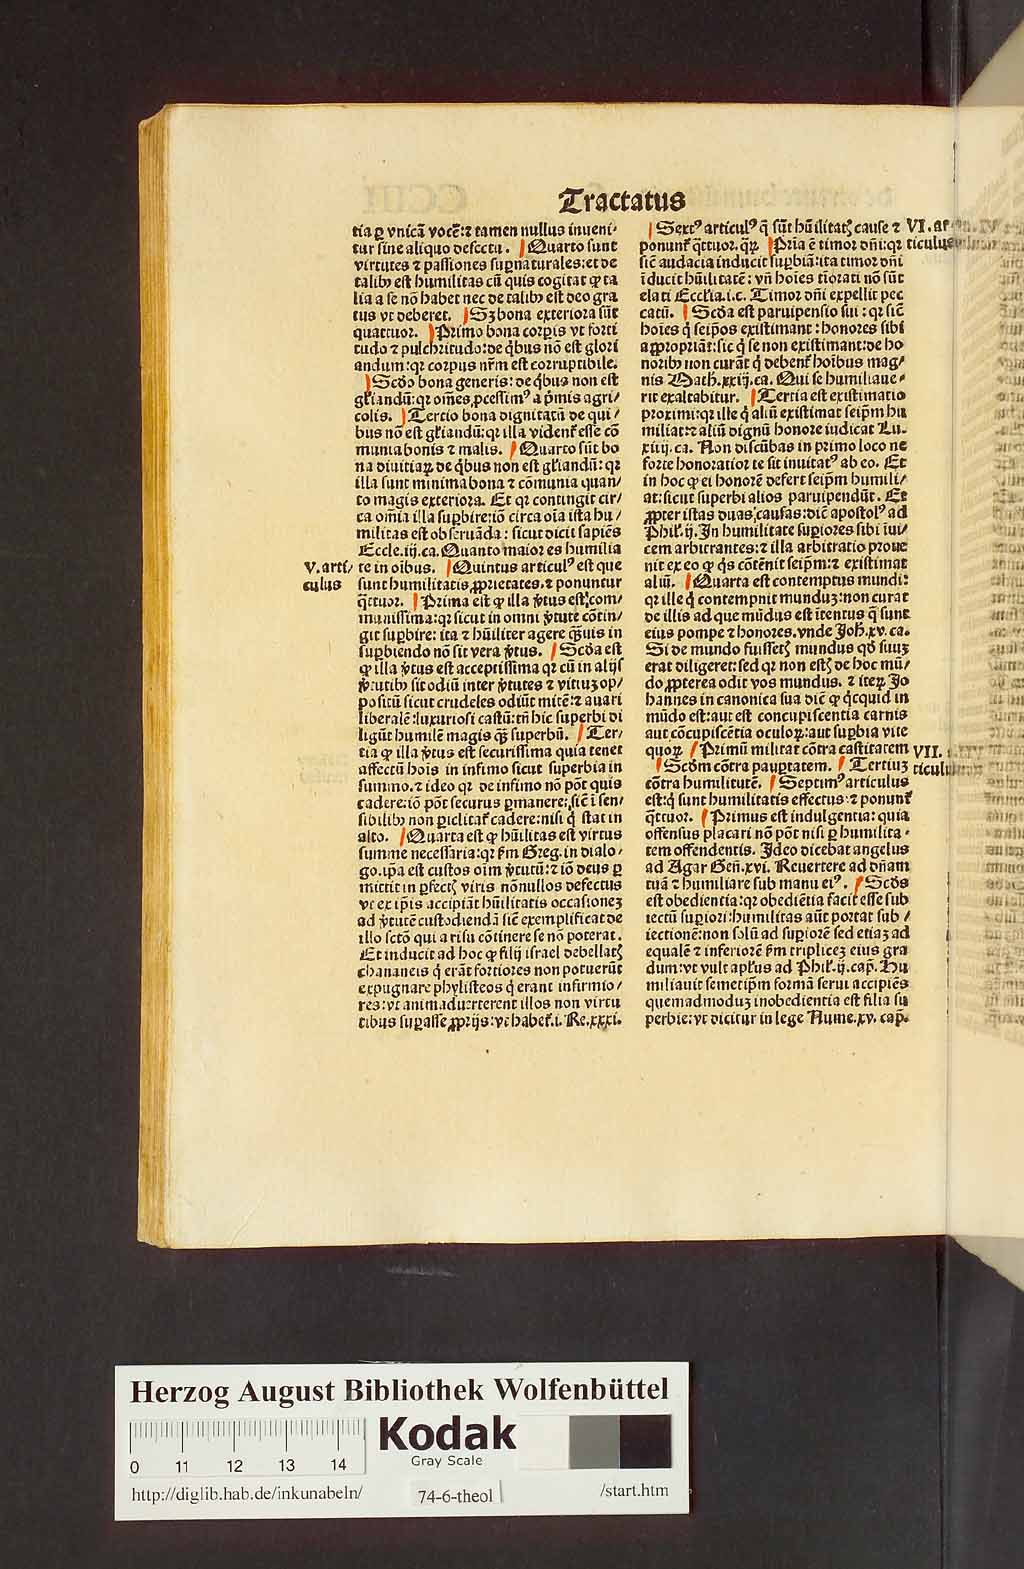 Tractatus
tia ꝑ vnicā vocē: ⁊ tamen nullus inueni⸗
tur sine aliquo defectu. Quarto sunt
virtutes ⁊ passiones supernaturales: et de
talibꝰ est humilitas cū quis cogitat ꝙ ta
lia a se nō habet nec de talibꝰ est deo gra
tus vt deberet. Sꝫ bona exteriora sūt
quattuor. Primo bona corꝑis vt forti
tudo ⁊ pulchritudo: de qͥbus nō est glori
andum: qꝛ corpus nr̄m est corruptibile.
Scd̄o bona generis: de qͥbus non est
gl̄iandū: qꝛ om̄es ꝓcessimꝰ a pͥmis agri⸗
colis. Tercio bona dignitatū de qui⸗
bus nō est gl̄iandū: qꝛ illa vident̄ esse cō
munia bonis ⁊ malis. Quarto sūt bo
na diuitiaꝝ de qͥbus non est gl̄iandū: qꝛ
illa sunt minima bona ⁊ cōmunia quan⸗
to magis exteriora. Et qꝛ contingit cir⸗
ca om̄ia illa suꝑbire: iō circa oīa ista hu⸗
militas est obseruāda: sicut dicit sapiēs
Eccle. iij. ca. Quanto maior es humilia
te in oībus. Quintus articulꝰ est que
sunt humilitatis ꝓprietates. ⁊ ponuntur
qͣttuor. Prima est ꝙ illa v̄tus est com⸗
munissima: qꝛ sicut in omni v̄tute cōtin⸗
git suꝑbire: ita ⁊ hūiliter agere qͣꝫuis in
suꝑbiendo nō sit vera v̄tus. Scd̄a est
ꝙ illa v̄tus est acceptissima qꝛ cū in alijs
v̄tutibꝰ sit odiū inter v̄tutes ⁊ vitiuꝫ op⸗
positū sicut crudeles odiūt mitē: ⁊ auari
liberalē: luxuriosi castū: tn̄ hic superbi di
ligūt humilē magis qͣꝫ superbū. Ter⸗
tia ꝙ illa v̄tus est securissima quia tenet
affectū hoīs in infimo sicut superbia in
summo. ⁊ ideo qꝛ de infimo nō pōt quis
cadere: iō pōt securus ꝑmanere: sic̄ ī sen⸗
sibilibꝰ non ꝑiclitat̄ cadere: nisi qͥ stat in
alto. Quarta est ꝙ hūilitas est virtus
summe necessaria: qꝛ fm̄ Greg. in dialo⸗
go. ipa est custos oīm v̄tutū: ⁊ iō deus ꝑ
mittit in ꝑfectꝭ viris nōnullos defectus
vt ex ipīs accipiāt hūilitatis occasioneꝫ
ad v̄tutē custodiendā sic̄ exemplificat de
illo sct̄o qui a risu cōtinere se nō poterat.
Et inducit ad hoc ꝙ filij israel debellatꝭ
chananeis qͥ erāt fortiores non potuerūt
expugnare phylisteos qͥ erant infirmio⸗
res: vt animaduerterent illos non virtu
tibus suꝑasse ꝓprijs: vt habet̄. i. Re. xxxi.
V. arti⸗
culus
Sextꝰ articulꝰ q̄ sūt hūilitatꝭ cause ⁊
ponunt̄ qͣttuor. qꝛ Pria ē timor dn̄i: qꝛ
sic̄ audacia inducit suꝑbiā: ita timor dn̄i
īducit hūilitatē: vn̄ hoīes tīorati nō sūt
elati Eccl̄ia. i. c. Timor dn̄i expellit pec
catū. Scd̄a est paruipensio sui: qꝛ sic̄
hoīes qͥ seipos existimant: honores sibi
appropriāt: sic qͥ se non existimant: de ho
noribꝰ non curāt qͥ debent̄ hoībus mag⸗
nis Math. xxiij. ca. Qui se humiliaue⸗
rit exaltabitur. Tertia est existimatio
proximi: qꝛ ille qͥ aliū existimat seipm̄ hu
miliat: ⁊ aliū dignū honore iudicat Lu.
xiiij. ca. Non discūbas in primo loco ne
forte honoratior te sit inuitatꝰ ab eo. Et
in hoc ꝙ ei honorē defert seipm̄ humili⸗
at: sicut superbi alios paruipendūt. Et
ꝓpter istas duas causas: dic̄ apostolꝰ ad
Phil̄. ij. In humilitate suꝑiores sibi īui⸗
cem arbitrantes: ⁊ illa arbitratio proue
nit ex eo ꝙ qͥs cōtēnit seipm̄: ⁊ existimat
aliū. Quarta est contemptus mundi:
qꝛ ille qͥ contempnit munduꝫ: non curat
de illis ad que mūdus est ītentus q̄ sunt
eius pompe ⁊ honores. vnde Joh. xv. ca.
Si de mundo fuissetꝭ mundus qd̄ suuꝫ
erat diligeret: sed qꝛ non estꝭ de hoc mū⸗
do ꝓpterea odit vos mundus. ⁊ iteꝝ Jo
hannes in canonica sua dic̄ ꝙ qͥcquid in
mūdo est: aut est concupiscentia carnis
aut cōcupiscētia oculoꝝ: aut suꝑbia vite
quoꝝ Primū militat cōtra castitatem
Scd̄m cōtra pauꝑtatem. Tertiuꝫ
cōtra humilitutē. Septimꝰ articulus
est: qͥ sunt humilitatis effectus: ⁊ ponunt̄
qͣttuor. Primus est indulgentia: quia
offensus placari nō pōt nisi ꝑ humilita⸗
tem offendentis. Ideo dicebat angelus
ad Agar Gen̄. xvi. Reuertere ad dn̄am
tuā ⁊ humiliare sub manu eiꝰ. Scd̄s
est obedientia: qꝛ obediētia facit esse sub
iectū suꝑiori: humilitas aūt portat sub⸗
iectionē: non solū ad suꝑiorē sed etiaꝫ ad
equalē ⁊ inferiorē fm̄ tripliceꝫ eius gra
dum: vt vult apl̄us ad Phil̄. ij. cap. Hu
miliauit semetipm̄ formā serui accipiēs
quemadmoduꝫ inobedientia est filia su
perbie: vt dicitur in lege Nume. xv. cap.
VI. ar
ticulus
VII.
ticulu
Herzog August Bibliothek Wolfenbüttel
Kodak
Gray Scale
0 11 12 13 14
http://diglib.hab.de/inkunabeln/
74-6-theol
/start.htm